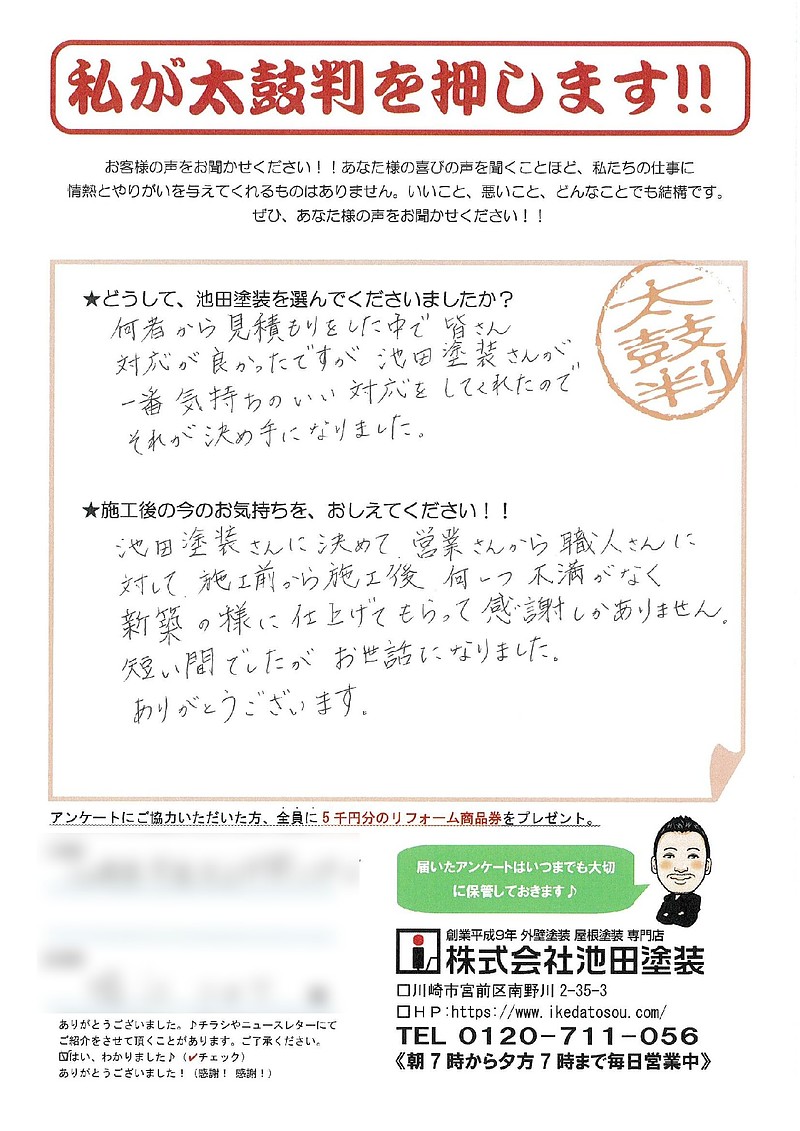 私が太鼓判を押します!!
お客様の声をお聞かせください！！あなた様の喜びの声を聞くことほど、私たちの仕事に
情熱とやりがいを与えてくれるものはありません。いいこと、悪いこと、どんなことでも結構です。
ぜひ、あなた様の声をお聞かせください！！
太鼓判
★どうして、池田塗装を選んでくださいましたか？
何者から見積もりをした中で皆さん
対応が良かったですが池田塗装さんが
一番気持ちのいい対応をしてくれたので
それが決め手になりました。
★施工後の今のお気持ちを、おしえてください！！
池田塗装さんに決めて、営業さんから職人さんに
対して、施工前から施工後何一つ不満がなく
新築の様に仕上げてもらって感謝しかありません。
短い間でしたがお世話になりました。
ありがとうございます。
アンケートにご協力いただいた方、全員に5千円分のリフォーム商品券をプレゼント。
届いたアンケートはいつまでも大切
に保管しておきます♪
創業平成9年 外壁塗装 屋根塗装 専門店
株式会社池田塗装
□川崎市宮前区南野川2-35-3
□ＨＰ:https://www.ikedatosou.com/
TEL 0120-711-056
《朝7時から夕方7時まで毎日営業中》
ありがとうございました。♪チラシやニュースレターにて
ご紹介をさせて頂くことがあります。ご了承ください。
☑はい、わかりました♪（✔チェック）
ありがとうございました！（感謝！感謝！）